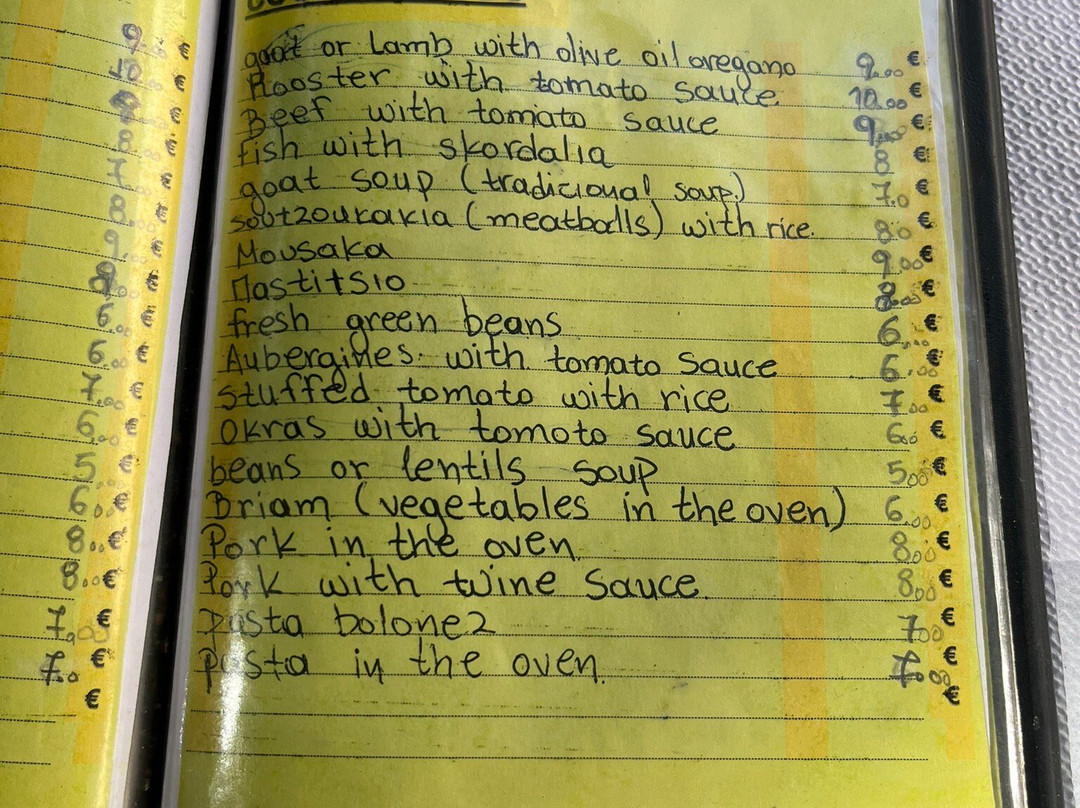 9.00 €
10.00 €
9.00 €
8.00 €
7.00 €
8.00 €
9.00 €
8.00 €
6.00 €
6.00 €
7.00 €
6.00 €
5.00 €
6.00 €
8.00 €
8.00 €
7.00 €
7.00 €
€
goat or Lamb with olive oil oregano 9.00 €
Rooster with tomato sauce 10.00 €
Beef with tomato sauce 9.00 €
fish with skordalia 8 €
goat soup (tradicional soup) 7.0 €
soutzoukakia (meatballs) with rice. 8.0 €
Mousaka 9.00 €
Πastitsio 8.00 €
fresh green beans 6.00 €
Aubergines. with tomato sauce 6.00 €
stuffed tomato with rice 7.00 €
Okras with tomoto sauce 6.00 €
beans or lentils soup 5.00 €
Briam (vegetables in the oven) 6.00 €
Pork in the oven 8.00 €
Pork with wine sauce. 8.00 €
Pasta bolonez 7.00 €
Pasta in the oven. 7.00 €
€